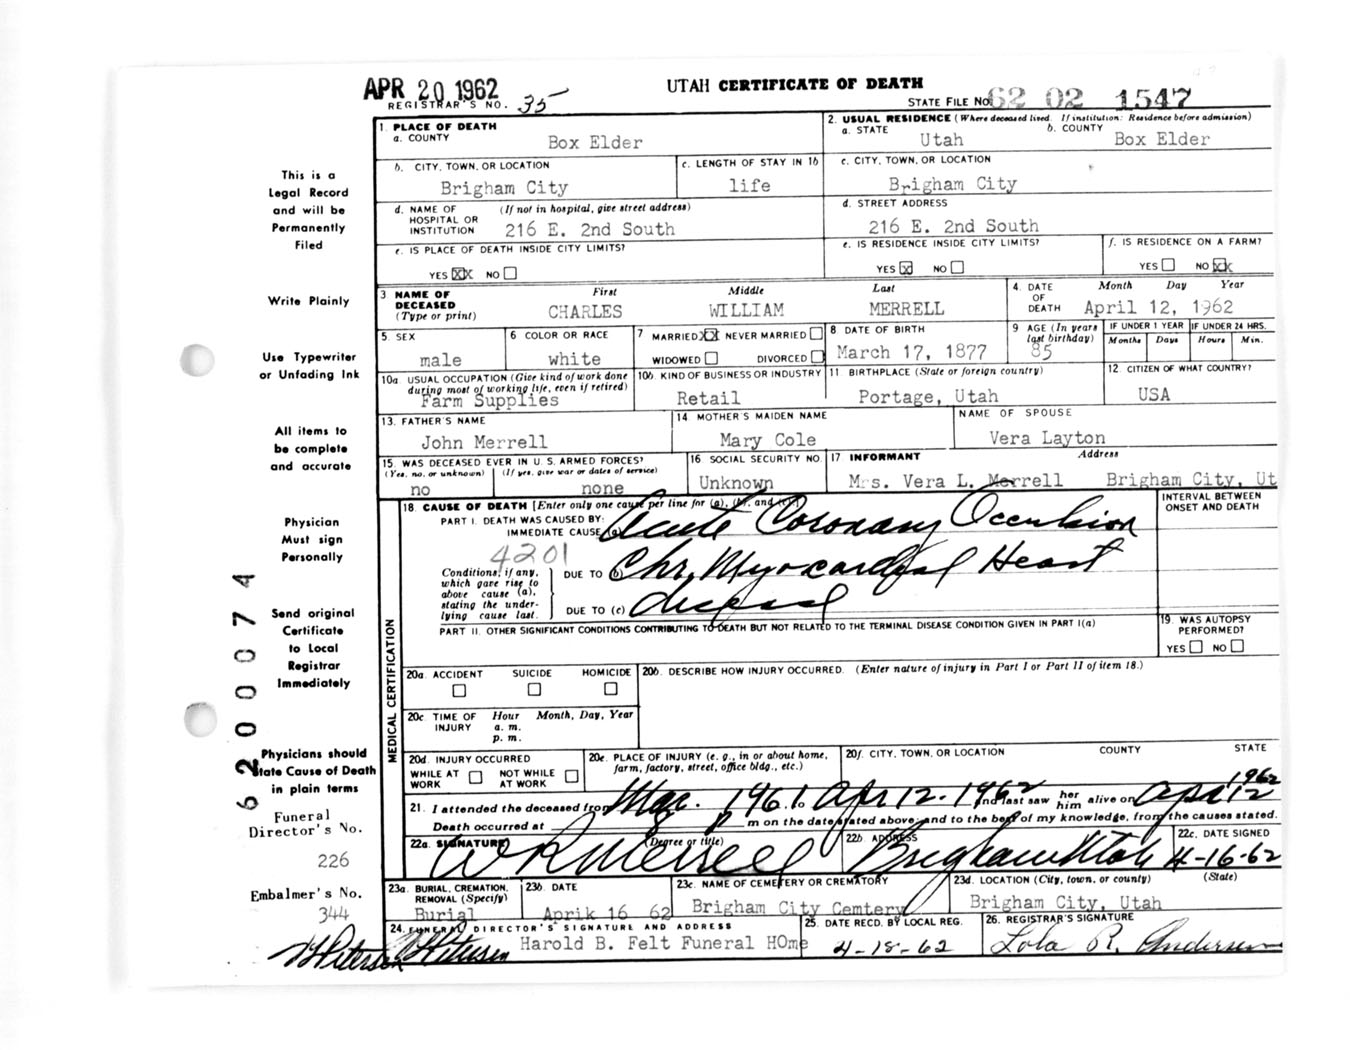 APR 20 1962
UTAH CERTIFICATE OF DEATH
REGISTRAR'S NO. 35
STATE FILE NO. 62 02 1547
This is a
Legal Record
and will be
Permanently
Filed
Write Plainly
Use Typewriter
or Unfading Ink
All items to
be complete
and accurate
Physician
Must sign
Personally
Send original
Certificate
to Local
Registrar
Immediately
Physicians should
State Cause of Death
in plain terms
Funeral
Director's No.
226
Embalmer's No.
344
6200074
1. PLACE OF DEATH
a. COUNTY
Box Elder
2. USUAL RESIDENCE (Where deceased lived. If institution: Residence before admission)
a. STATE b. COUNTY
Utah Box Elder
b. CITY, TOWN, OR LOCATION c. LENGTH OF STAY IN 1b
Brigham City life
c. CITY, TOWN, OR LOCATION
Brigham City
d. NAME OF (If not in hospital, give street address)
HOSPITAL OR
INSTITUTION 216 E. 2nd South
d. STREET ADDRESS
216 E. 2nd South
e. IS PLACE OF DEATH INSIDE CITY LIMITS?
YES XX NO
e. IS RESIDENCE INSIDE CITY LIMITS?
YES X NO
f. IS RESIDENCE ON A FARM?
YES NO XX
3 NAME OF First Middle Last
DECEASED
(Type or print) CHARLES WILLIAM MERRELL
4. DATE Month Day Year
OF
DEATH April 12, 1962
5. SEX
male
6 COLOR OR RACE
white
7 MARRIED XX NEVER MARRIED
WIDOWED DIVORCED
8 DATE OF BIRTH
March 17, 1877
9 AGE (In years
last birthday)
85
IF UNDER 1 YEAR IF UNDER 24 HRS.
Months Days Hours Min.
10a. USUAL OCCUPATION (Give kind of work done
during most of working life, even if retired)
Farm Supplies
10b. KIND OF BUSINESS OR INDUSTRY
Retail
11 BIRTHPLACE (State or foreign country)
Portage, Utah
12. CITIZEN OF WHAT COUNTRY?
USA
13. FATHER'S NAME
John Merrell
14 MOTHER'S MAIDEN NAME
Mary Cole
NAME OF SPOUSE
Vera Layton
15. WAS DECEASED EVER IN U. S. ARMED FORCES?
(Yes, no, or unknown) (If yes, give war or dates of service)
no none
16 SOCIAL SECURITY NO.
Unknown
17 INFORMANT Address
Mrs. Vera L. Merrell Brigham City, Ut
18. CAUSE OF DEATH [Enter only one cause per line for (a), (b), and (c).]
INTERVAL BETWEEN
ONSET AND DEATH
PART I. DEATH WAS CAUSED BY:
IMMEDIATE CAUSE (a) Acute Coronary Occulsion
4201
Conditions, if any,
which gave rise to
above cause (a),
stating the under-
lying cause last.
DUE TO (b) Chr. Myocardial Heart
DUE TO (c) disease
PART II. OTHER SIGNIFICANT CONDITIONS CONTRIBUTING TO DEATH BUT NOT RELATED TO THE TERMINAL DISEASE CONDITION GIVEN IN PART I(a)
19. WAS AUTOPSY
PERFORMED?
YES NO
MEDICAL CERTIFICATION
20a. ACCIDENT SUICIDE HOMICIDE
20b. DESCRIBE HOW INJURY OCCURRED. (Enter nature of injury in Part I or Part II of item 18.)
20c TIME OF Hour Month, Day, Year
INJURY a. m.
p. m.
20d. INJURY OCCURRED
WHILE AT NOT WHILE
WORK AT WORK
20e. PLACE OF INJURY (e. g., in or about home,
farm, factory, street, office bldg., etc.)
20f. CITY, TOWN, OR LOCATION COUNTY STATE
21. I attended the deceased from Mar. 1961 to Apr 12 - 1962 and last saw her him alive on Apr 12 1962
Death occurred at 8 p m on the date stated above; and to the best of my knowledge, from the causes stated.
22a. SIGNATURE (Degree or title)
W R Merrell
22b. ADDRESS
Brigham Utah
22c. DATE SIGNED
4-16-62
23a. BURIAL, CREMATION,
REMOVAL (Specify)
Burial
23b. DATE
Aprik 16 62
23c. NAME OF CEMETERY OR CREMATORY
Brigham City Cemtery
23d. LOCATION (City, town, or county) (State)
Brigham City, Utah
24. FUNERAL DIRECTOR'S SIGNATURE AND ADDRESS
Harold B. Felt Funeral HOme
25. DATE RECD. BY LOCAL REG.
4-18-62
26. REGISTRAR'S SIGNATURE
Lola R. Andersen